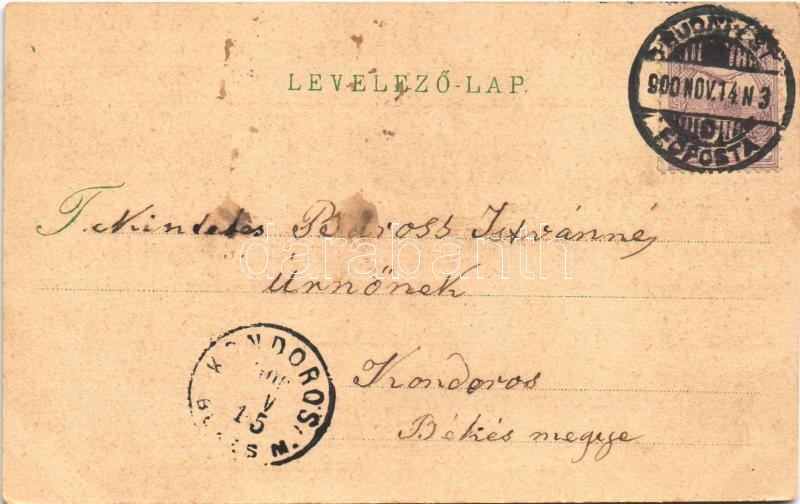 BUDAPEST
900 NOV. 14 N 3
FŐPOSTA
LEVELEZŐ-LAP.
Tekintetes Baross Istvánné,
Úrnőnek
darabanth
KONDOROS
15
BÉKÉS M.
Kondoros
Békés megye